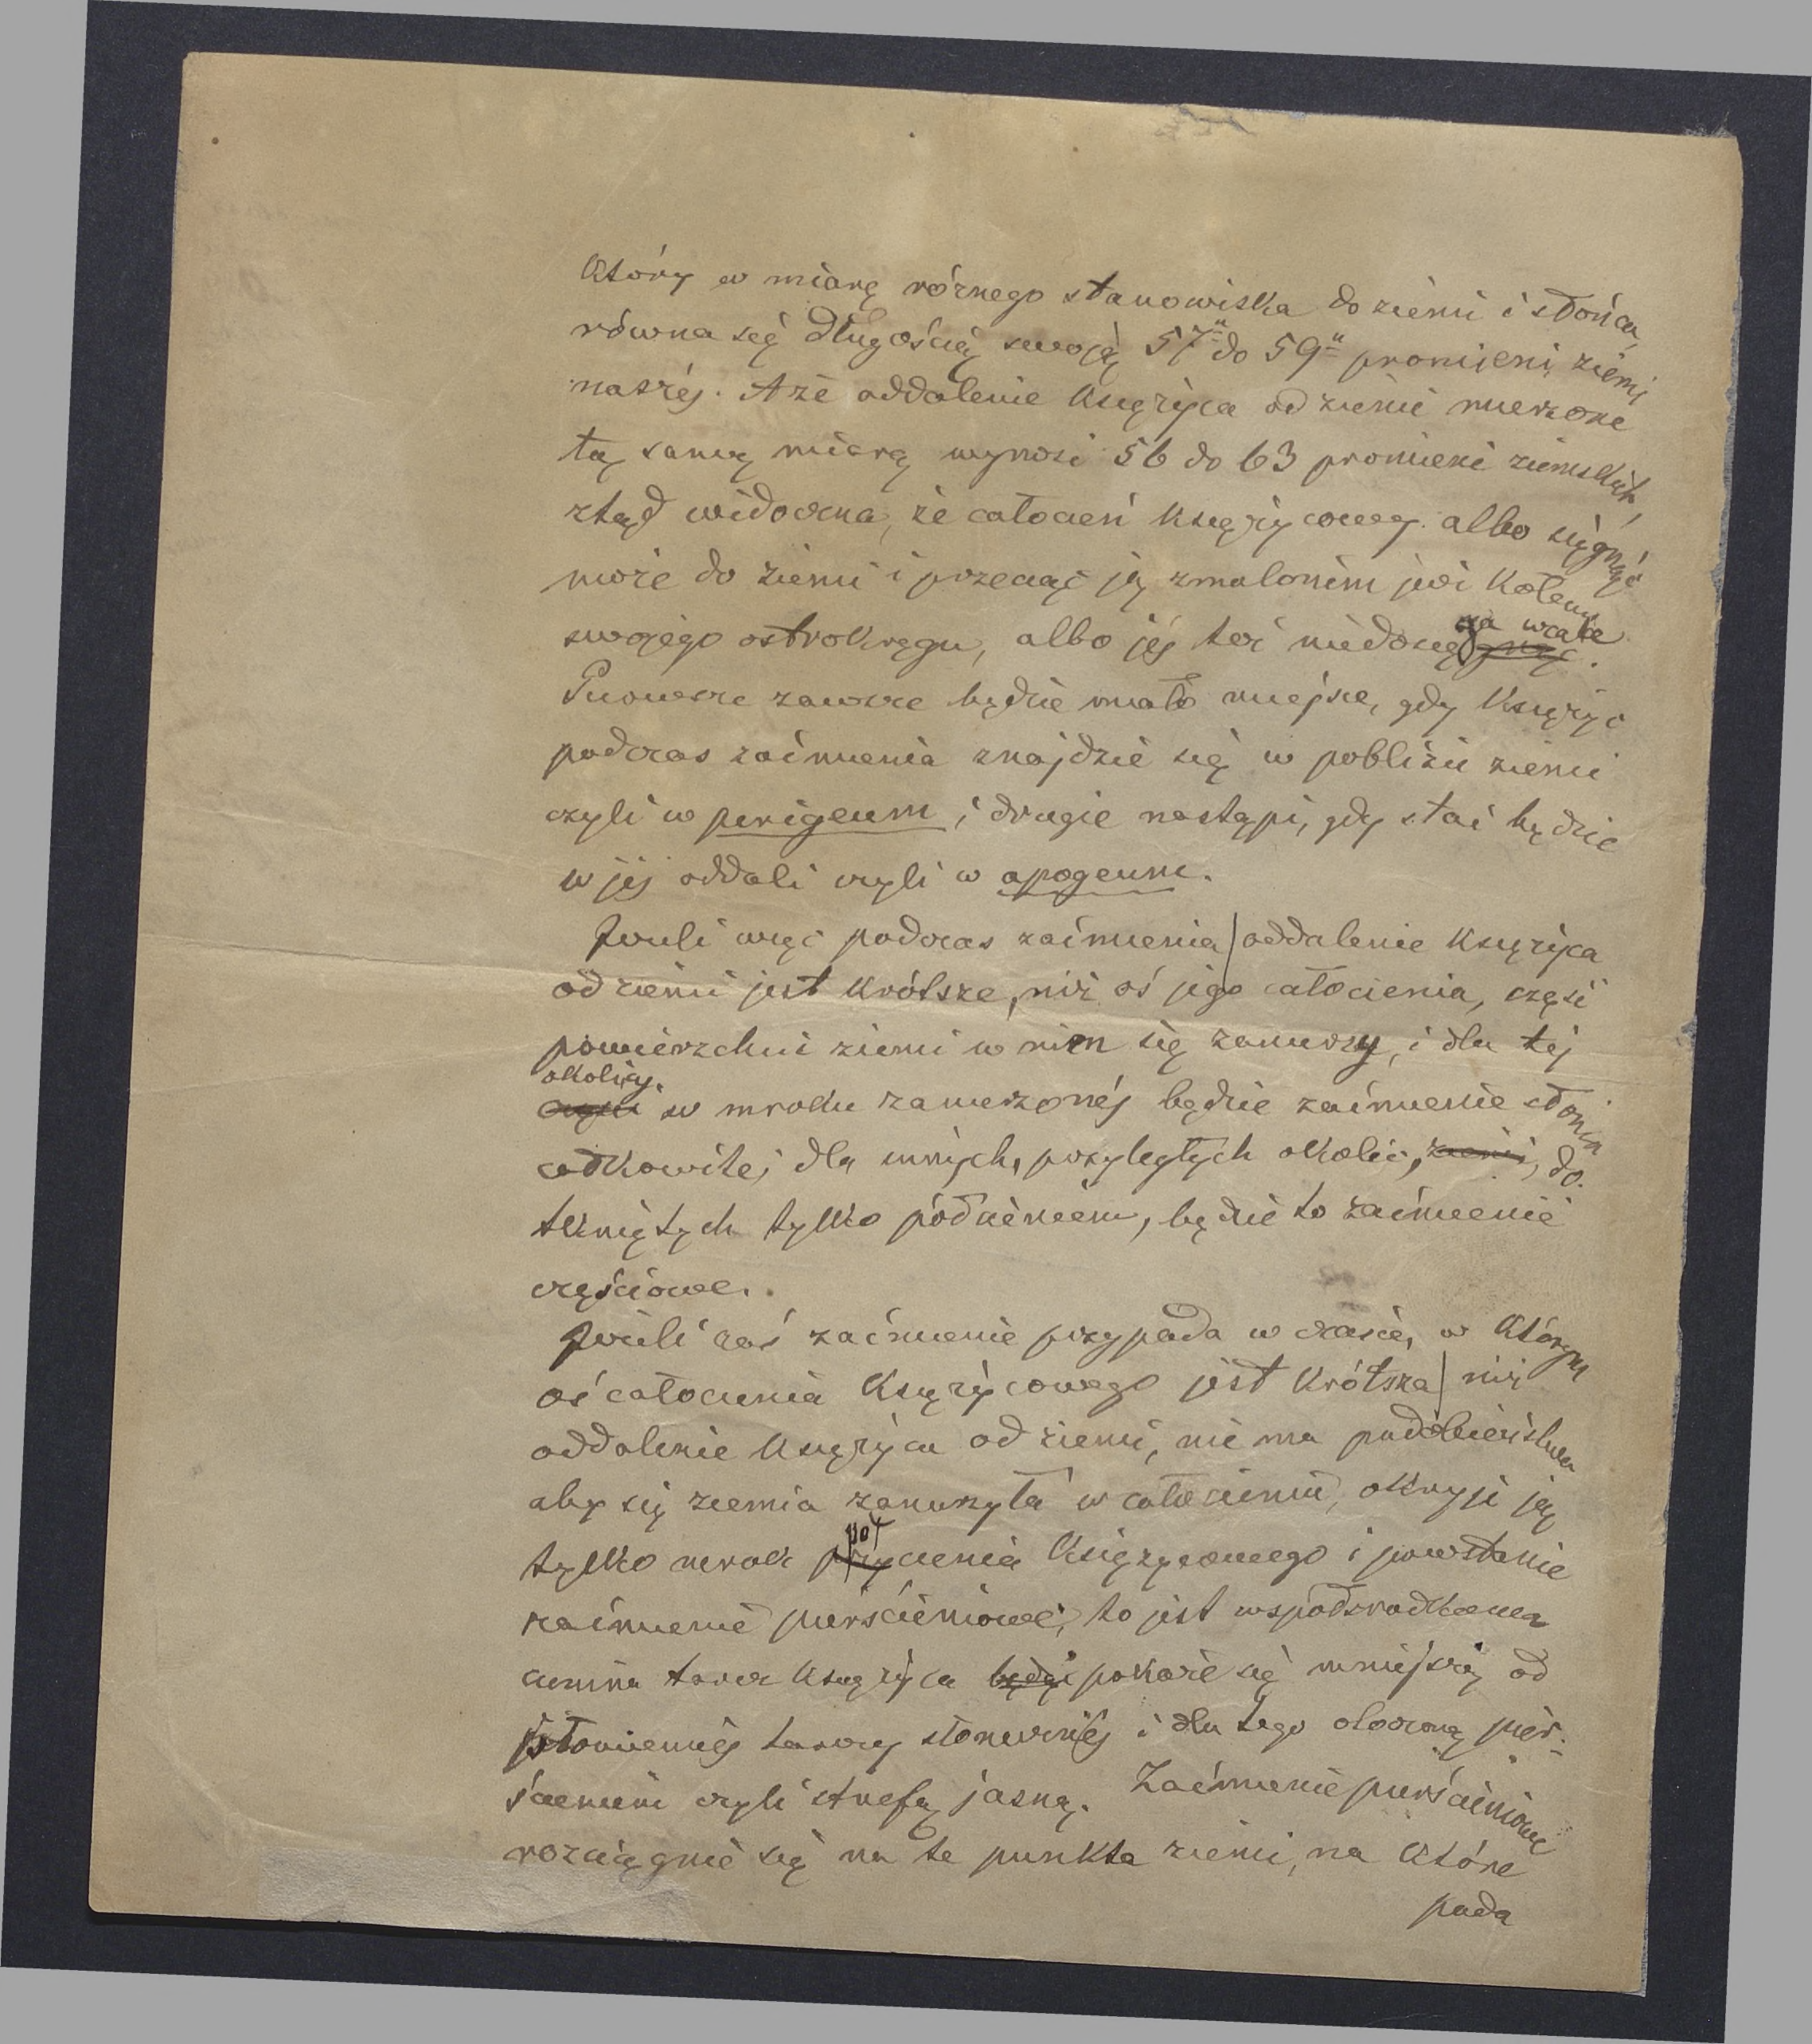 który w miarę różnego stanowiska do ziemi i słońca,
równa się długością swoją 57u do 59u promieni ziemi
naszéj. A że oddalenie księżyca od ziemi mierzone
tą samą miarą wynosi 56 do 63 promieni ziemskich,
ztąd widoczna, że całocień księżycowy albo sięgnąć
może do ziemi i przeciąć ją zmalonem już kołem
swojego ostrokręgu, albo jéj też niedosięga wcale.
Pierwsze zawsze będzie miało miejsce, gdy księżyc
podczas zaćmienia znajdzie się w pobliżu ziemi
czyli w perigeum, i drugie nastąpi, gdy stać będzie
w jéj oddali czyli w apogeum.
Jeżeli więc podczas zaćmienia oddalenie księżyca
od ziemi jest krótsze, niż oś jego całocienia, część
powierzchni ziemi w nim się zanurzy, i dla téj
okolicy w mroku zanurzonéj będzie zaćmienie słońca
całkowite; dla innych, przyległych okolic, do-
tkniętych tylko półcieniem, będzie to zaćmienie
częściowe.
Jeżeli zaś zaćmienie przypada w czasie, w którym
oś całocienia księżycowego jest krótsza niż
oddalenie księżyca od ziemi, nie ma podobieństwa
aby się ziemia zanurzyła w całocieniu, okryje ją
tylko mrok półcienia księżycowego i powstanie
zaćmienie pierścieniowe, to jest współśrodkowa
ciemna tarcz księżyca pokaże się mniejszą od
płomiennéj tarczy słonecznéj i dla tego otoczoną pier-
ścieniem czyli strefą jasną. Zaćmienie pierścieniowe
rozciągnie się na te punkta ziemi, na które
pada